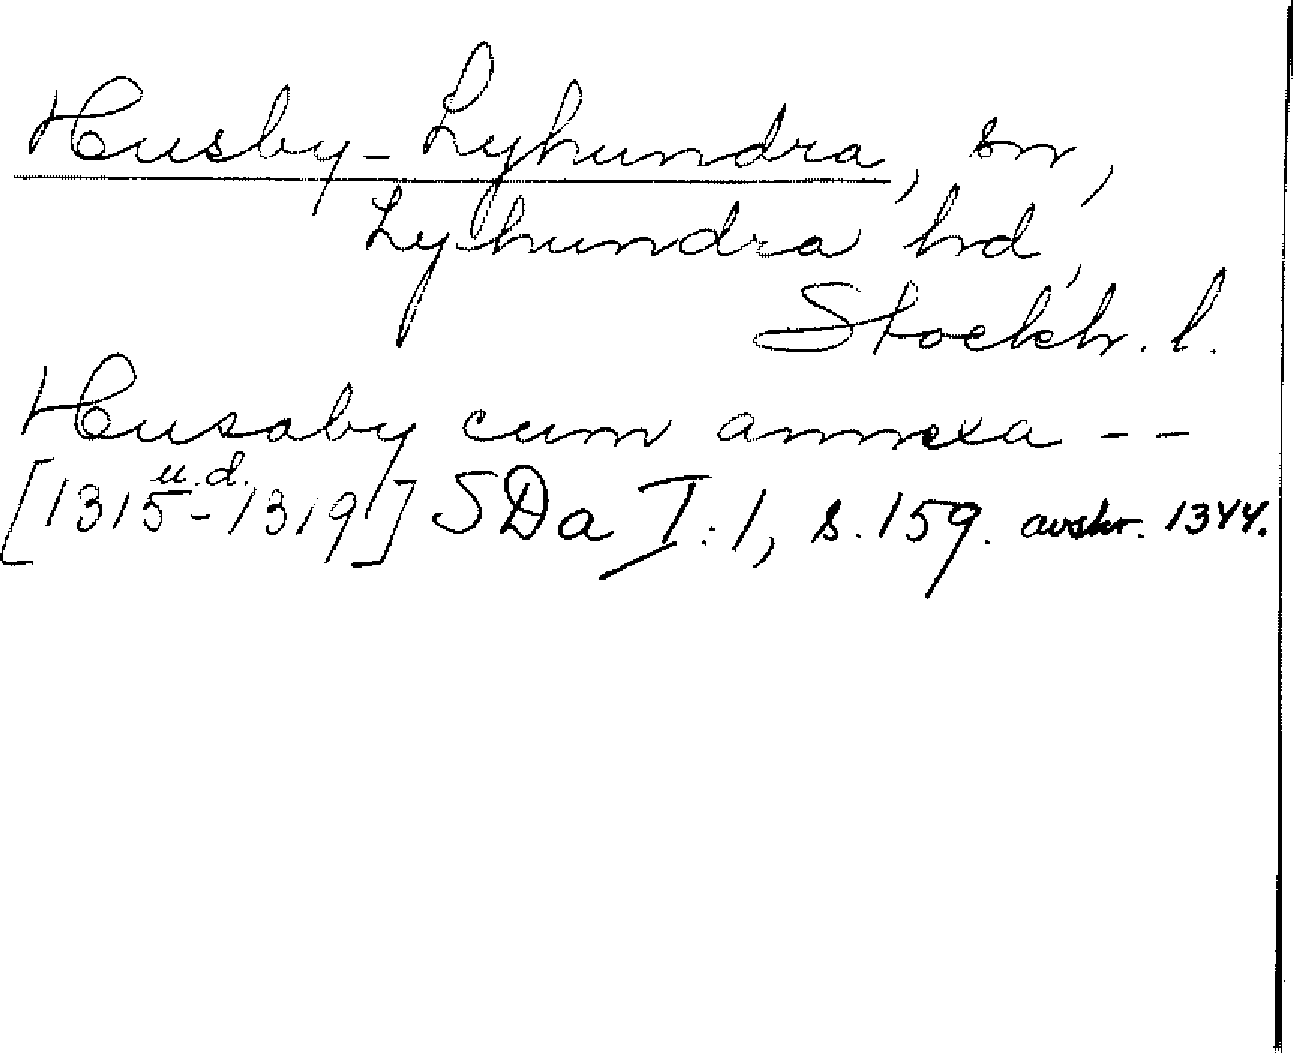 Husby-Lyhundra, sn,
Lyhundra hd,
Stockh. l.
Husaby cum annexa --
[1315-1319 u.d.] SDa I:1, s. 159. avskr. 1344.